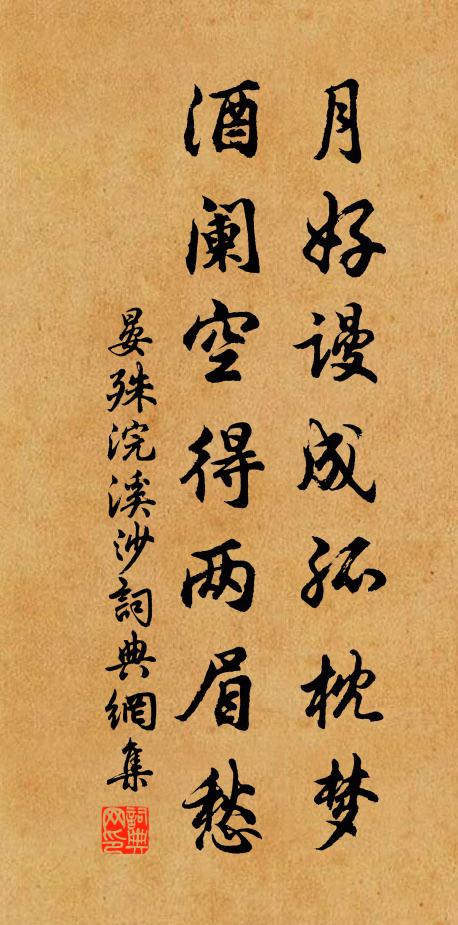 月好谩成孤枕梦
酒阑空得两眉愁
晏殊浣溪沙詞典網集
詞典网印